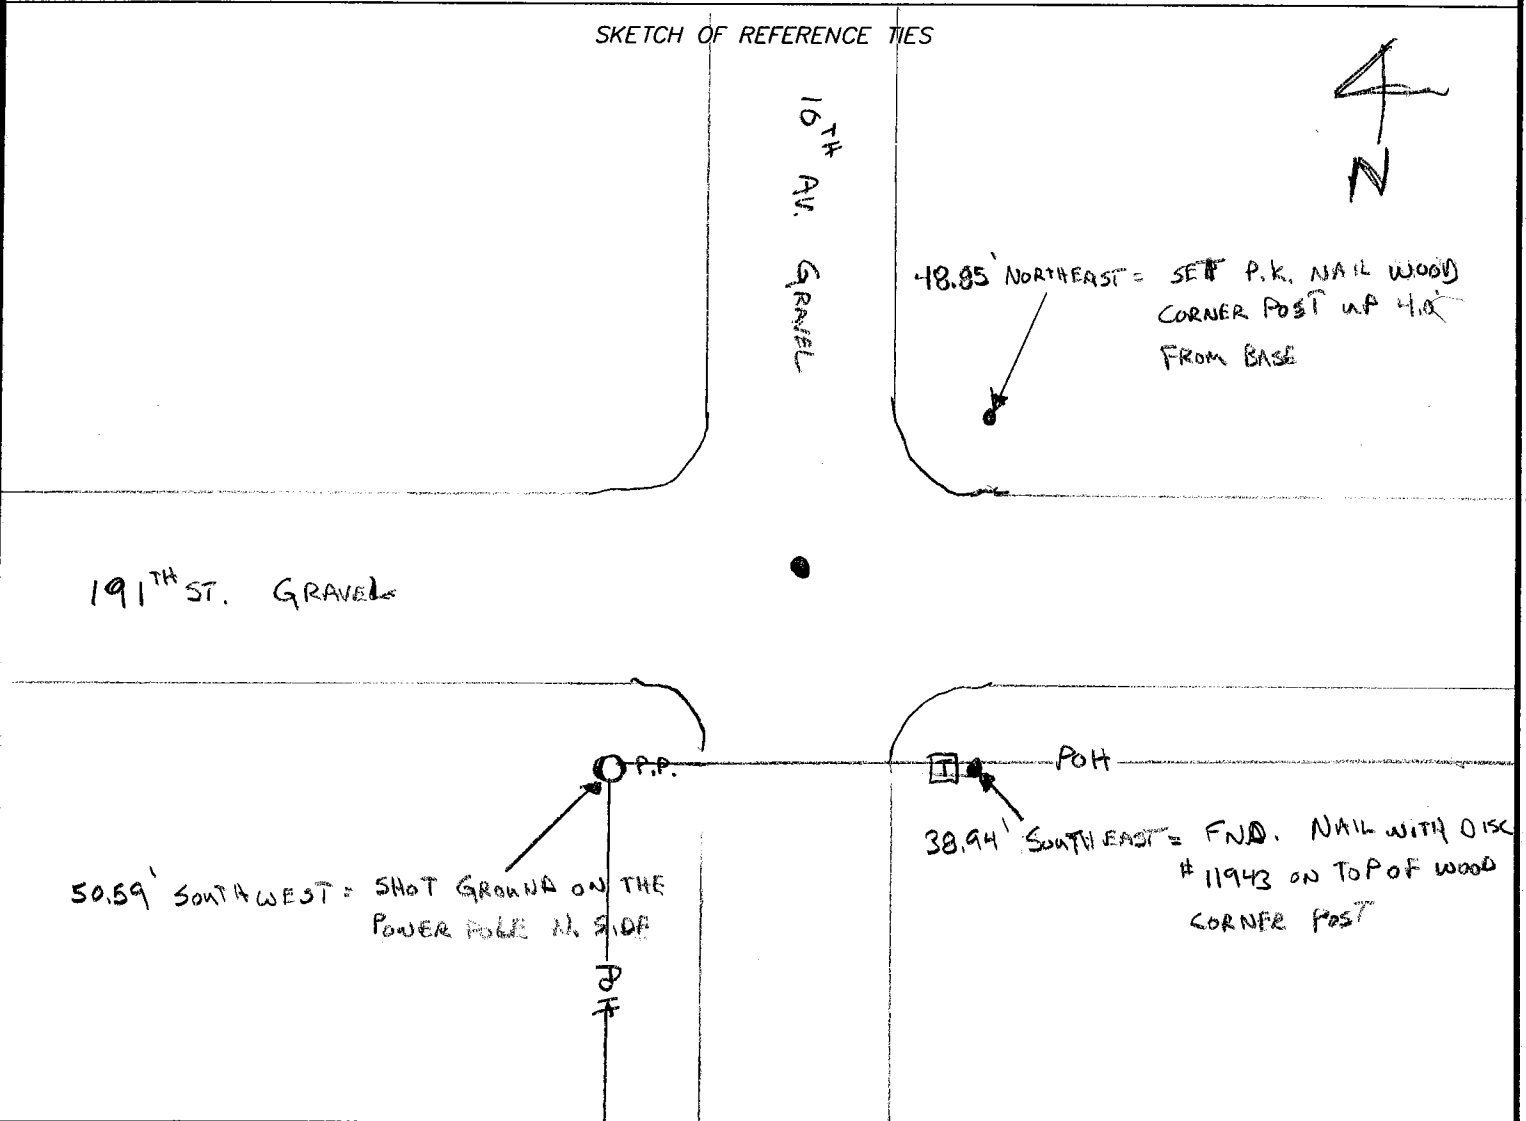 SKETCH OF REFERENCE TIES
N
16TH AV. GRAVEL
48.85' NORTHEAST = SET P.K. NAIL WOOD
CORNER POST UP 4.0'
FROM BASE
191TH ST. GRAVEL
P.P.
T
POH
38.94' SOUTHEAST = FND. NAIL WITH DISC
#11943 ON TOP OF WOOD
CORNER POST
50.59' SOUTHWEST = SHOT GROUND ON THE
POWER POLE N. SIDE